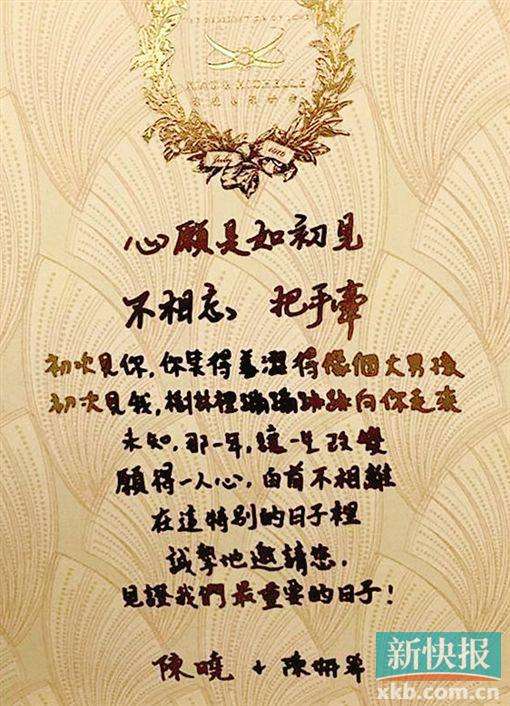 MICHELLE
July 2016
心願是如初見
不相忘。把手牽
初次見你,你笑得羞澀得像個大男孩
初次見我,樹林裡蹦蹦跳跳向你走來
未知,那一年,這一生改變
願得一人心,白首不相離
在這特別的日子裡
誠摯地邀請您,
見證我們最重要的日子!
陳曉 + 陳妍希
新快报
xkb.com.cn